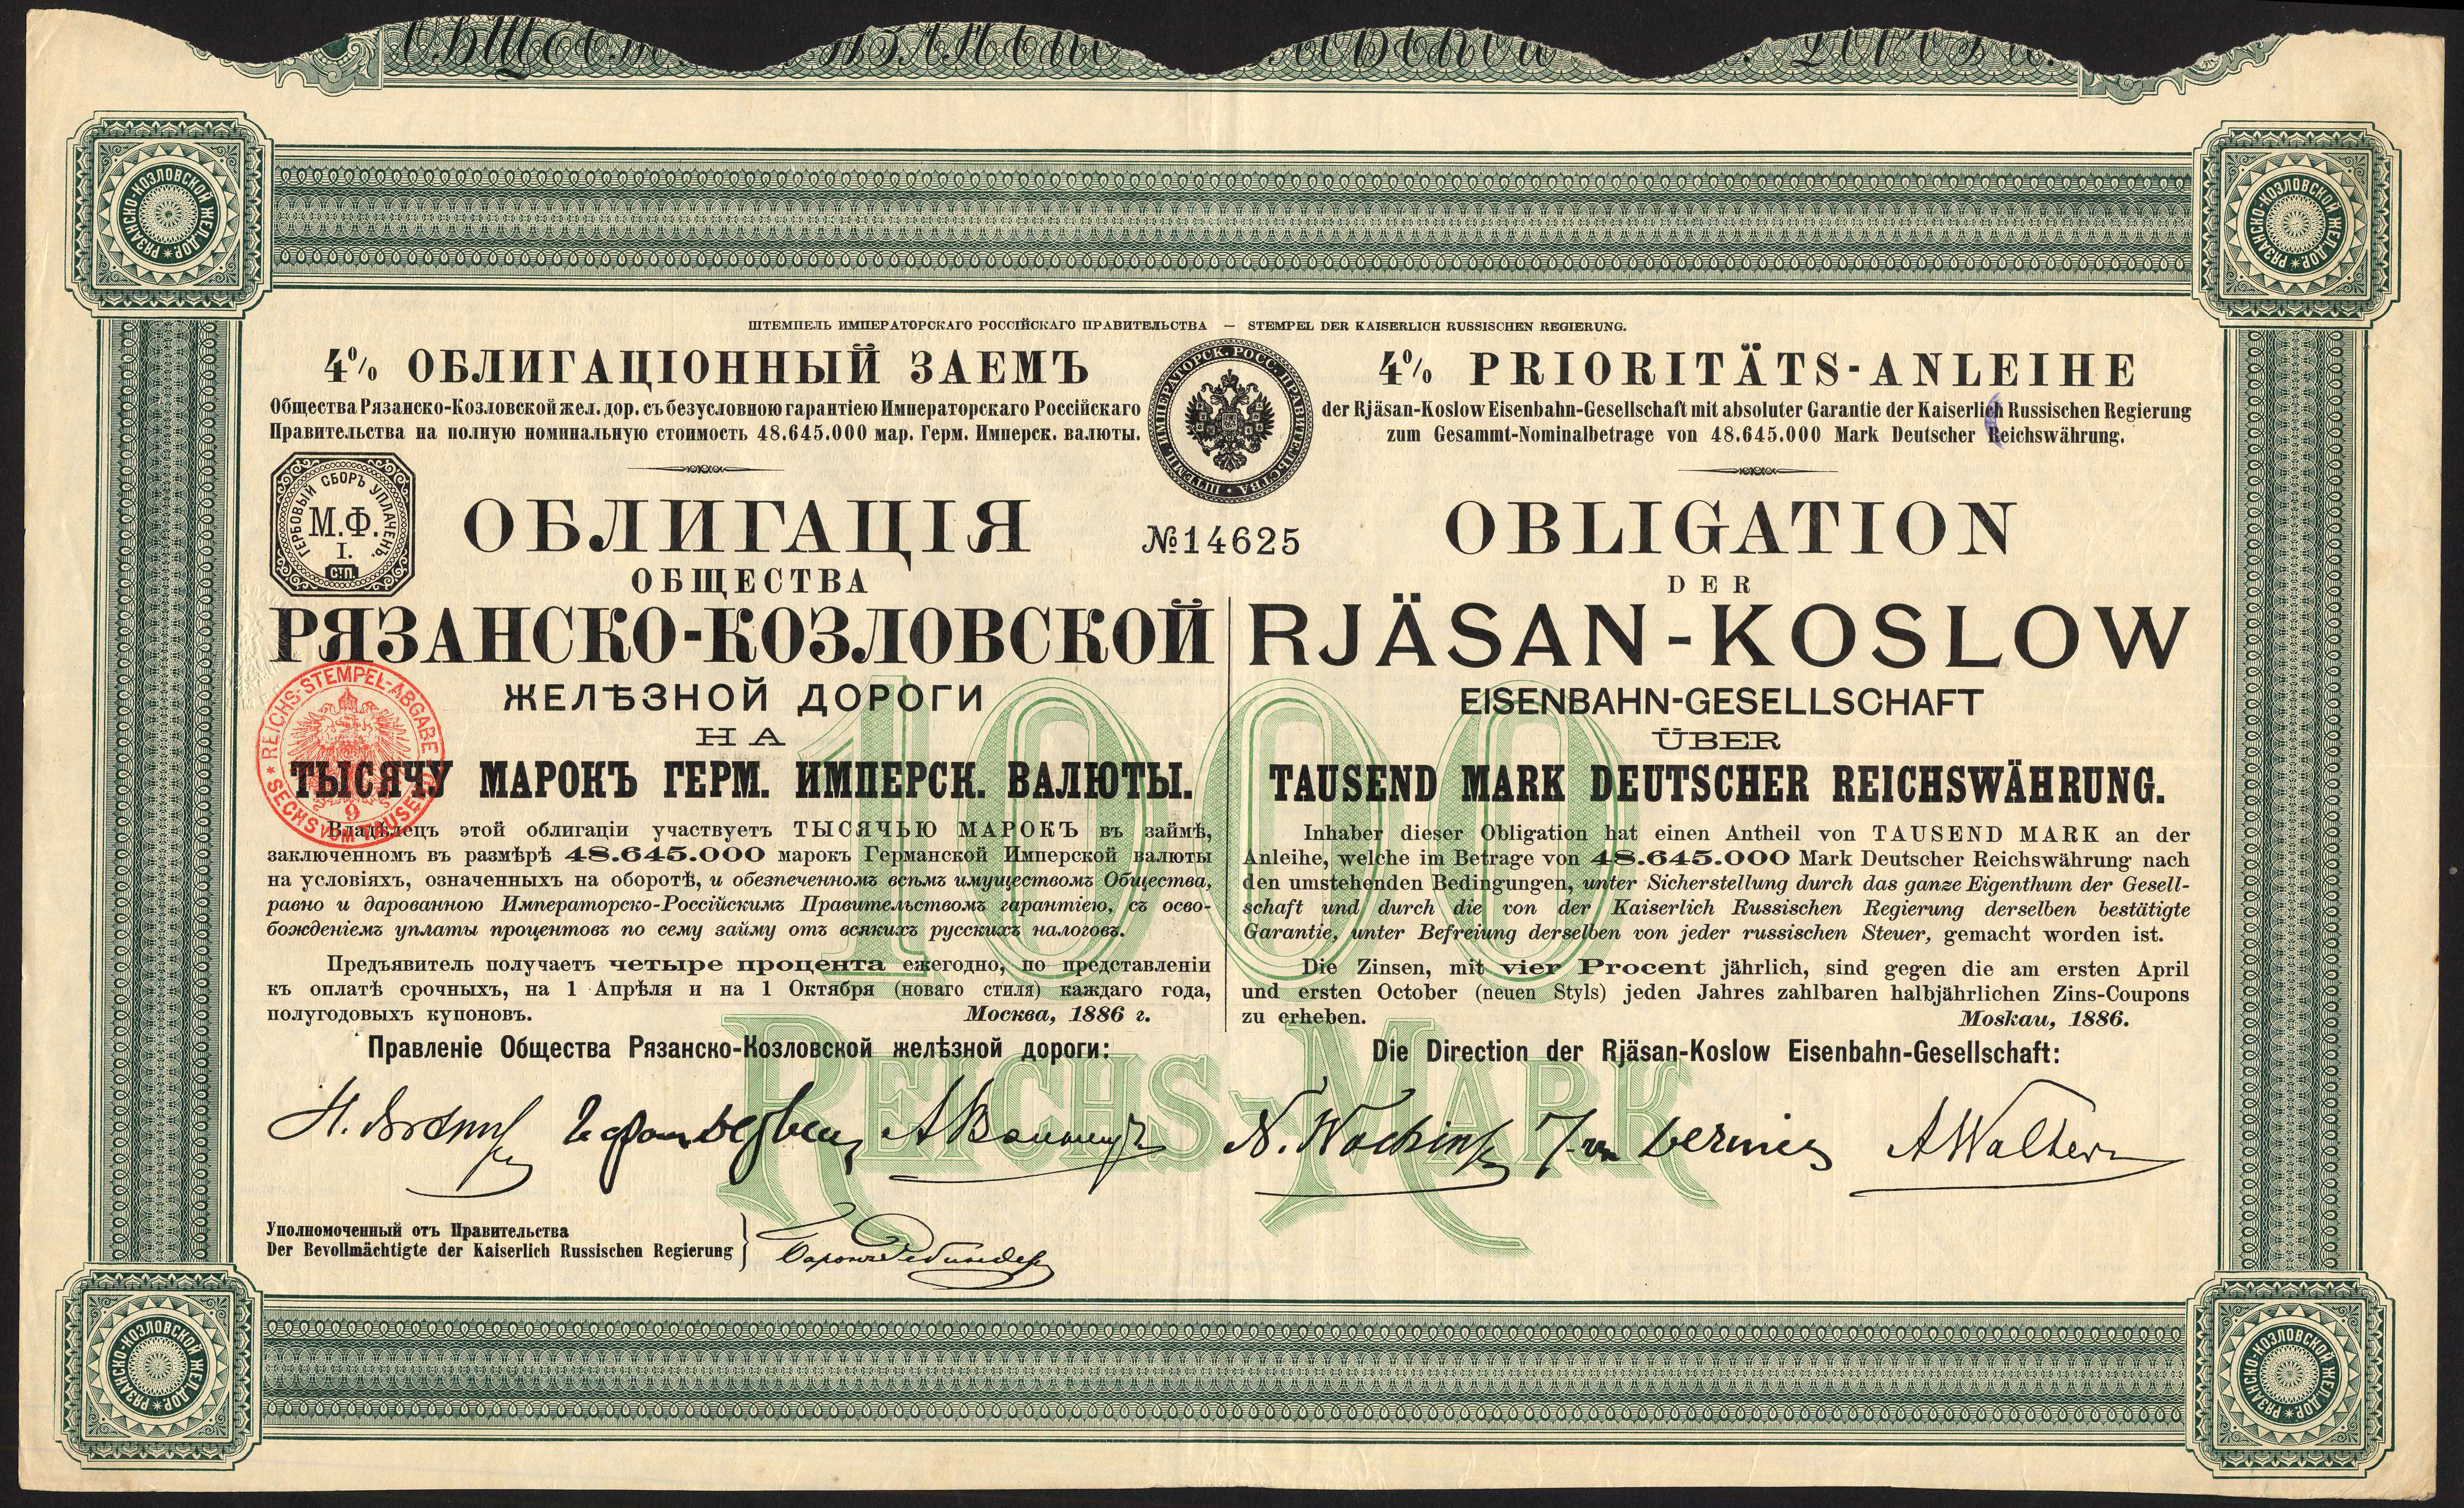 ШТЕМПЕЛЬ ИМПЕРАТОРСКАГО РОССІЙСКАГО ПРАВИТЕЛЬСТВА — STEMPEL DER KAISERLICH RUSSISCHEN REGIERUNG.
4% ОБЛИГАЦІОННЫЙ ЗАЕМЪ
Общества Рязанско-Козловской жел. дор. съ безусловною гарантіею Императорскаго Россійскаго
Правительства на полную номинальную стоимость 48.645.000 мар. Герм. Имперск. валюты.
ГЕРБОВЫЙ СБОРЪ УПЛАЧЕНЪ.
М.Ф.
I.
С.П.
ОБЛИГАЦІЯ
ОБЩЕСТВА
РЯЗАНСКО-КОЗЛОВСКОЙ
ЖЕЛѢЗНОЙ ДОРОГИ
НА
ТЫСЯЧУ МАРОКЪ ГЕРМ. ИМПЕРСК. ВАЛЮТЫ.
REICHS-STEMPEL-ABGABE
SECHS VOM TAUSEND
9
Владѣлецъ этой облигаціи участвуетъ ТЫСЯЧЬЮ МАРОКЪ въ займѣ,
заключенномъ въ размѣрѣ 48.645.000 марокъ Германской Имперской валюты
на условіяхъ, означенныхъ на оборотѣ, и обезпеченномъ всѣмъ имуществомъ Общества,
равно и дарованною Императорско-Россійскимъ Правительствомъ гарантіею, съ осво-
божденіемъ уплаты процентовъ по сему займу отъ всякихъ русскихъ налоговъ.
Предъявитель получаетъ четыре процента ежегодно, по представленіи
къ оплатѣ срочныхъ, на 1 Апрѣля и на 1 Октября (новаго стиля) каждаго года,
полугодовыхъ купоновъ. Москва, 1886 г.
Правленіе Общества Рязанско-Козловской желѣзной дороги:
Уполномоченный отъ Правительства
Der Bevollmächtigte der Kaiserlich Russischen Regierung
ИМПЕРАТОРСК. РОСС. ПРАВИТЕЛЬСТВА
№14625
4% PRIORITÄTS-ANLEIHE
der Rjäsan-Koslow Eisenbahn-Gesellschaft mit absoluter Garantie der Kaiserlich Russischen Regierung
zum Gesammt-Nominalbetrage von 48.645.000 Mark Deutscher Reichswährung.
OBLIGATION
DER
RJÄSAN-KOSLOW
EISENBAHN-GESELLSCHAFT
ÜBER
TAUSEND MARK DEUTSCHER REICHSWÄHRUNG.
Inhaber dieser Obligation hat einen Antheil von TAUSEND MARK an der
Anleihe, welche im Betrage von 48.645.000 Mark Deutscher Reichswährung nach
den umstehenden Bedingungen, unter Sicherstellung durch das ganze Eigenthum der Gesell-
schaft und durch die von der Kaiserlich Russischen Regierung derselben bestätigte
Garantie, unter Befreiung derselben von jeder russischen Steuer, gemacht worden ist.
Die Zinsen, mit vier Procent jährlich, sind gegen die am ersten April
und ersten October (neuen Styls) jeden Jahres zahlbaren halbjährlichen Zins-Coupons
zu erheben. Moskau, 1886.
Die Direction der Rjäsan-Koslow Eisenbahn-Gesellschaft:
A Walther
1000
REICHS-MARK
РЯЗАНСКО-КОЗЛОВСКОЙ ЖЕЛ. ДОР.
РЯЗАНСКО-КОЗЛОВСКОЙ ЖЕЛ. ДОР.
РЯЗАНСКО-КОЗЛОВСКОЙ ЖЕЛ. ДОР.
РЯЗАНСКО-КОЗЛОВСКОЙ ЖЕЛ. ДОР.